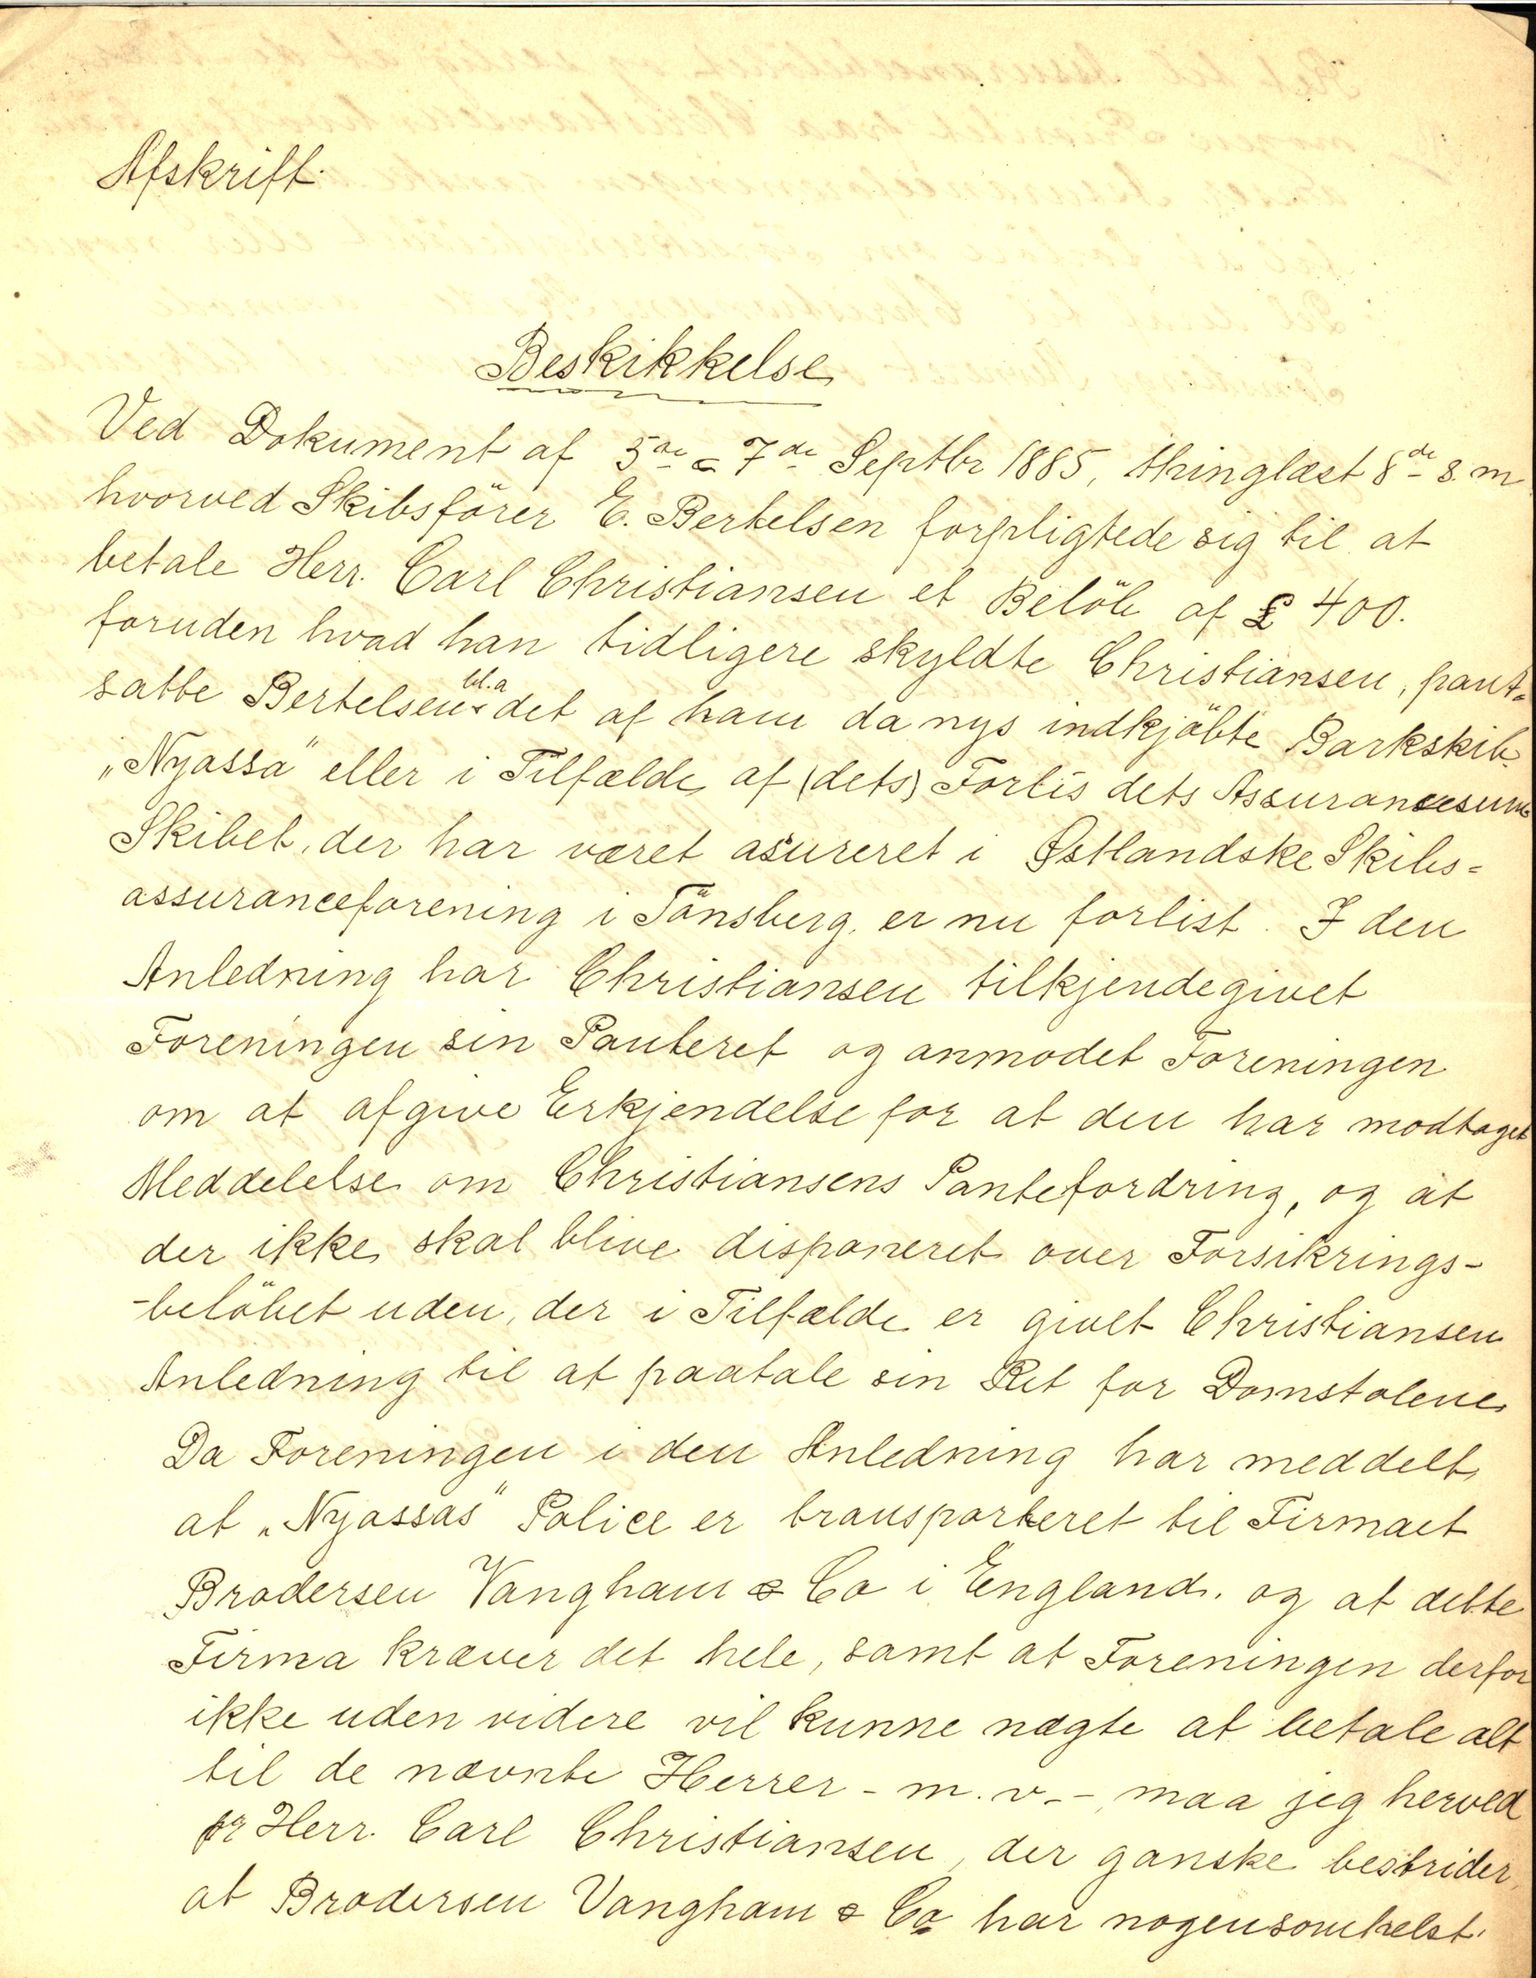 Afskrift.
Beskikkelse
Ved Dokument af 5te a 7de Septbr 1885, thinglæst 8de s. m
hvorved Skibsförer E. Bertelsen forpligtede sig til at
betale Herr. Carl Christiansen et Belöb af £ 400.
foruden hvad han tidligere skyldte Christiansen, pant-
satte Bertelsen bl.a det af ham da nys indkjöbte Barkskib
„Nyassa" eller i Tilfælde af (dets) Forlis dets Assurancesum
Skibet, der har været asureret i Østlandske Skibs=
assuranceforening i Tönsberg, er nu forlist. I den
Anledning har Christiansen tilkjendegivet
Foreningen sin Panteret og anmodet Foreningen
om at afgive Erkjendelse for at den har modtaget
Meddelelse om Christiansens Pantefordring, og at
der ikke skal blive disponeret over Forsikrings-
-belöbet uden, der i Tilfælde er givet Christiansen
Anledning til at paatale sin Ret for Domstolene
Da Foreningen i den Anledning har meddelt,
at „Nyassas" Police er transporteret til Firmaet
Brodersen Vangham & Co i England. og at dette
Firma kræver det hele, samt at Foreningen derfor
ikke uden videre vil kunne nægte at betale alt
til de nævnte Herrer - m. v. -, maa jeg herved
pr Herr. Carl Christiansen, der ganske bestrider,
at Brodersen Vangham & Co har nogensomhelst